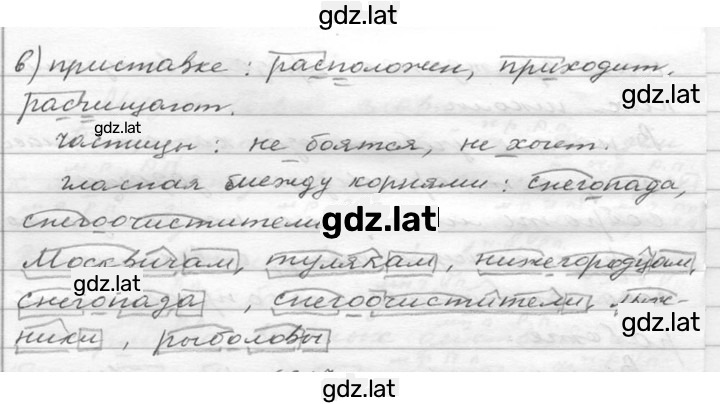 gdz.lat
в) приставке: расположен, приходит,
gdz.lat
расчищают.
gdz.lat
частицы: не боятся, не хочет.
гласная между корнями: снегопада,
снегоочистители
gdz.lat
Москвичам, тулякам, нижегородцам,
gdz.lat
снегопада, снегоочистители, лыж-
gdz.lat
ники, рыболовы
gdz.lat